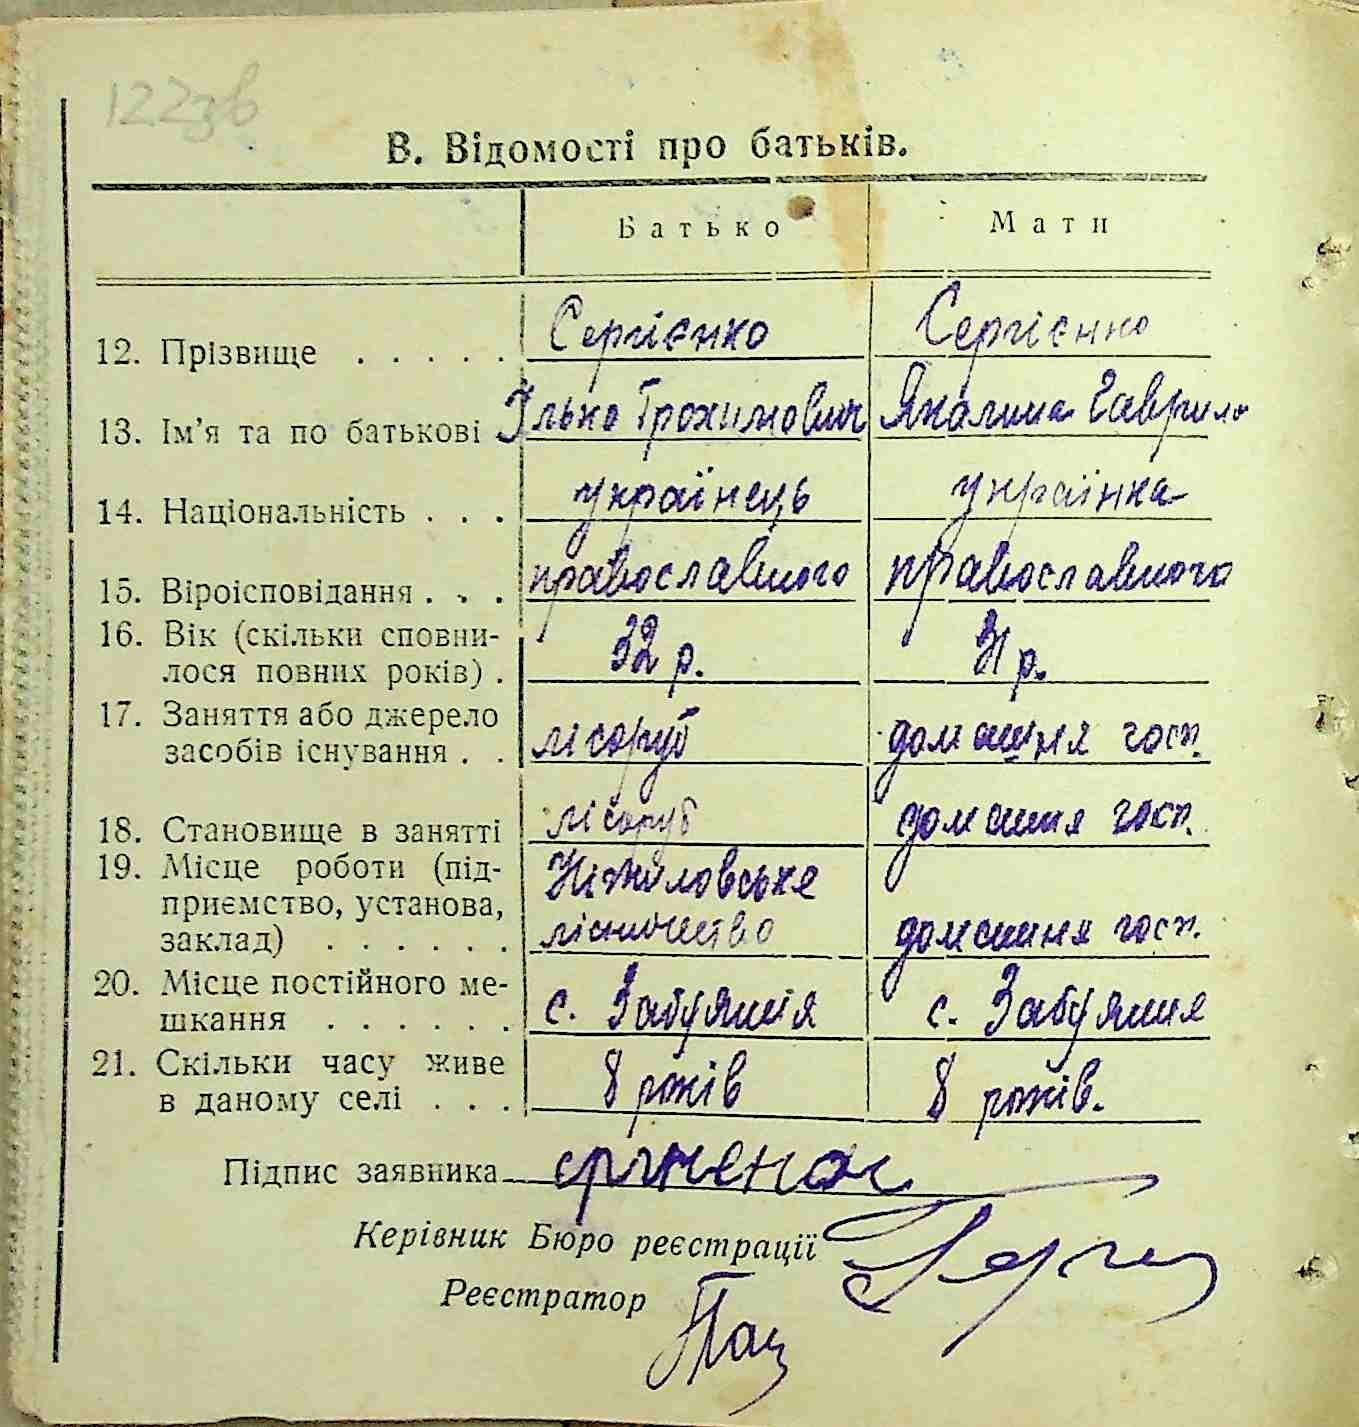 122зв
В. Відомості про батьків.
Батько Мати
12. Прізвище . . . . . Сергієнко Сергієнко
13. Ім'я та по батькові Ілько Трохимович Якилина Гаврило
14. Національність . . . українець українка
15. Віроісповідання . . . православного православного
16. Вік (скільки сповни-
лося повних років) . 32 р. 31 р.
17. Заняття або джерело
засобів існування . . лісоруб домашня госп.
18. Становище в занятті лісоруб домашня госп.
19. Місце роботи (під-
приємство, установа,
заклад) . . . . . . лісництво домашня госп.
20. Місце постійного ме-
шкання . . . . . . с. Забуяння с. Забуяння
21. Скільки часу живе
в даному селі . . . 8 років 8 років.
Підпис заявника
Керівник Бюро реєстрації
Реєстратор